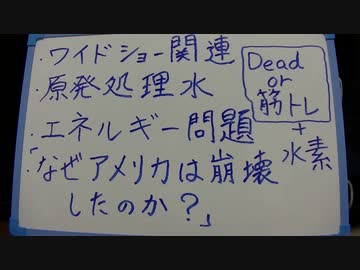 ・ワイドショー関連
・原発処理水
・エネルギー問題
・「なぜアメリカは崩壊
したのか？」
Dead
or
筋トレ
+
水素